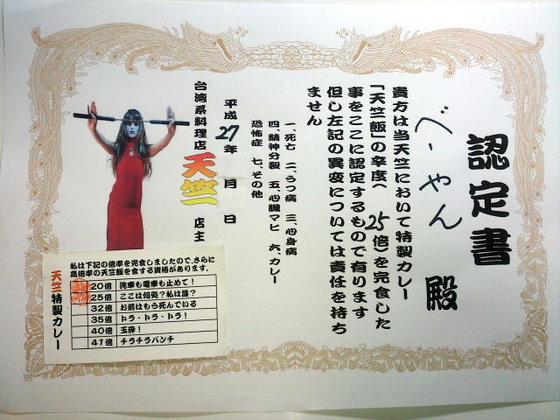 認定書
べーやん 殿
貴方は当天竺において特製カレー
「天竺飯」の辛度( 25倍を完食した
事をここに認定するもので有ります
但し左記の異変については責任を持ち
ません
一、死亡 二、うつ病 三、心身病
四、精神分裂 五、心臓マヒ 六、カレー
恐怖症 七、その他
平成27年 月 日
台湾系料理店 天竺 店主
私は下記の倍率を完食しましたので、さらに
高倍率の天竺飯を食する資格があります。
20倍 洗車も電車も止めて!
25倍 ここは何処?私は誰?
32倍 お前はもう死んでいる
35倍 トラ・トラ・トラ!
40倍 玉砕!
41倍 チラチラパンチ
天竺特製カレー